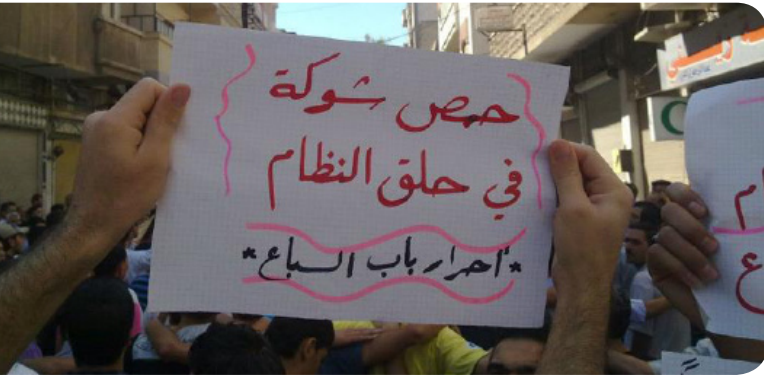 حمص شوكة
في حلق النظام
*احرار باب السباع*